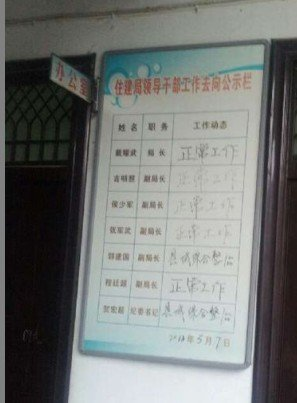 办公室
住建局领导干部工作去向公示栏
姓名 职务 工作动态
戴耀武 局长 正常工作
言明照 副局长 正常工作
侯少军 副局长 正常工作
张军武 副局长 正常工作
郭建国 副局长 县城综合整治
程廷超 副局长 正常工作
贺宏超 纪委书记 县城综合整治
5月7日